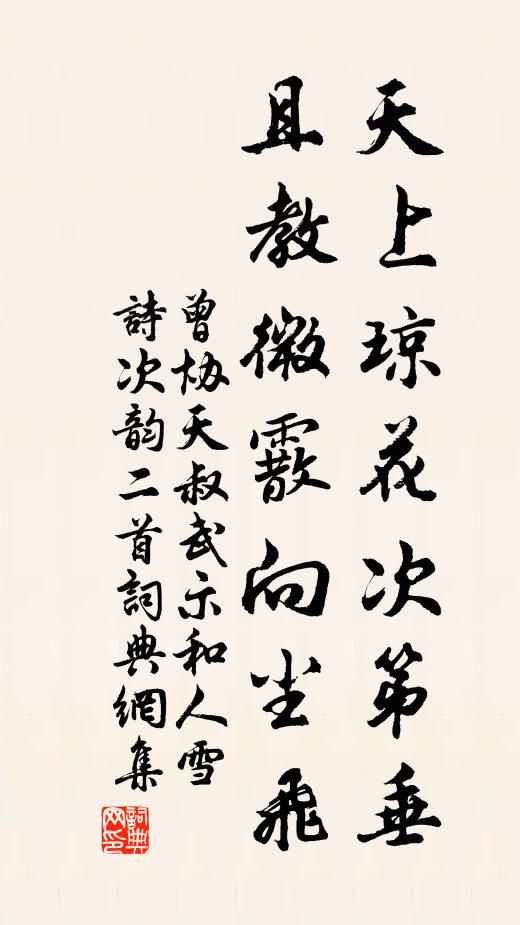 天上琼花次第垂
且教微霰向尘飛
曾协天叔武示和人雪
詩次韵二首詞典網集
詞典